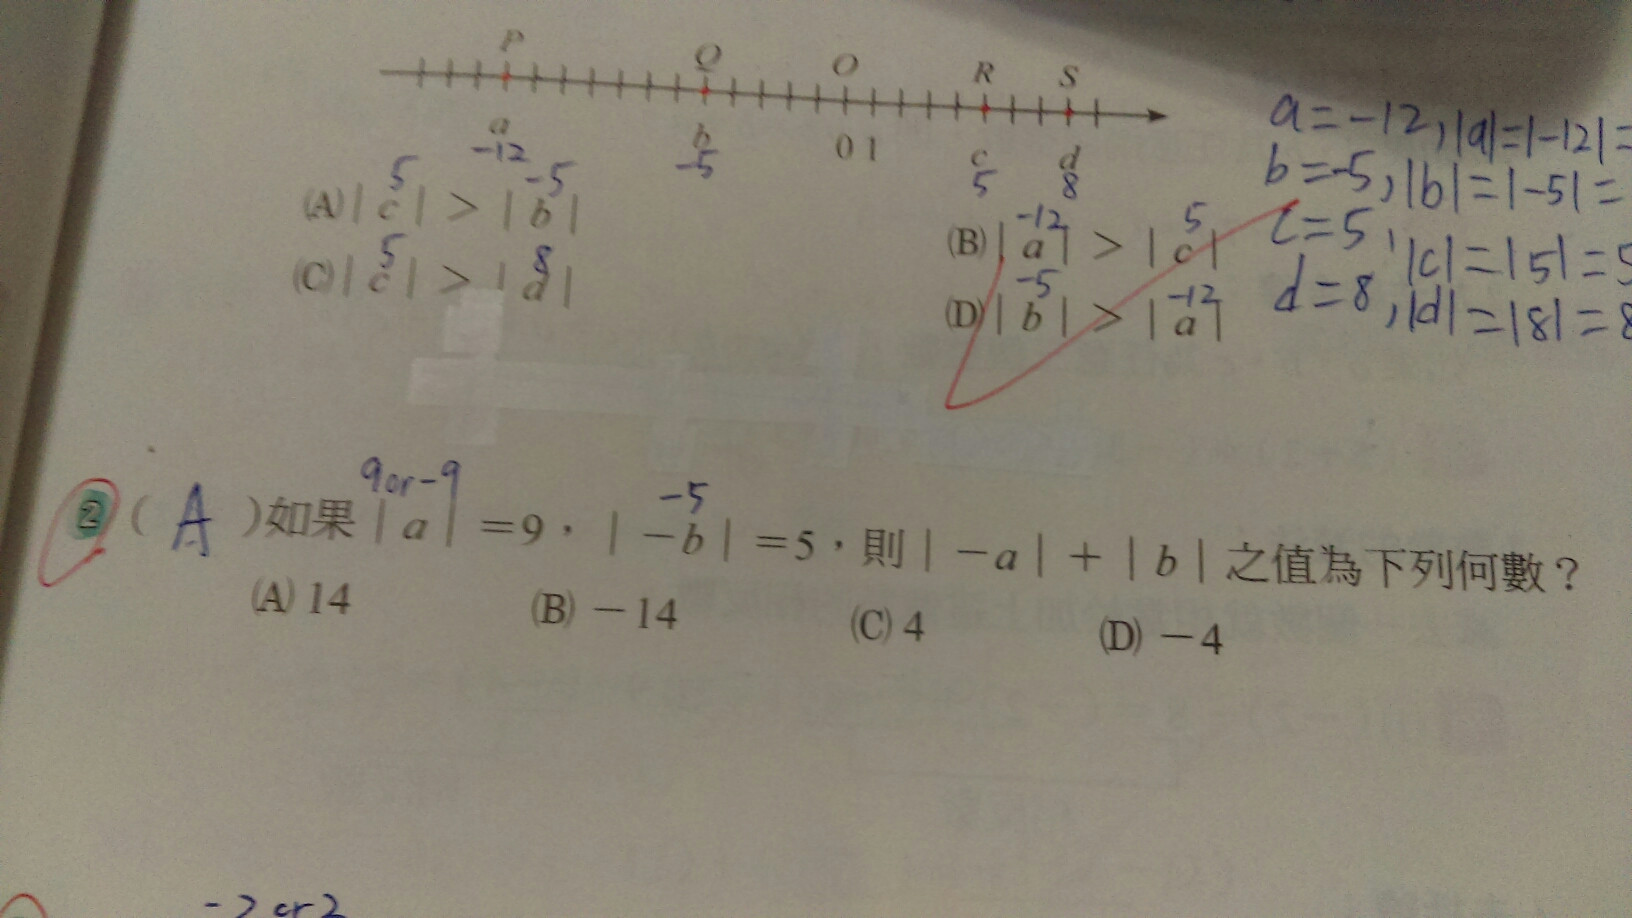 P Q O R S
a b 0 1 c d
-12 -5 5 8
a=-12, |a|=|-12|=
b=-5, |b|=|-5|=
c=5, |c|=|5|=5
d=8, |d|=|8|=8
5 -5
(A)|c|>|b|
-12 5
(B)|a|>|c|
5 8
(C)|c|>|d|
-5 -12
(D)|b|>|a|
9or-9 -5
2 ( A )如果|a|=9，|-b|=5，則|-a|+|b|之值為下列何數？
(A) 14 (B) -14 (C) 4 (D) -4
-2 or 2